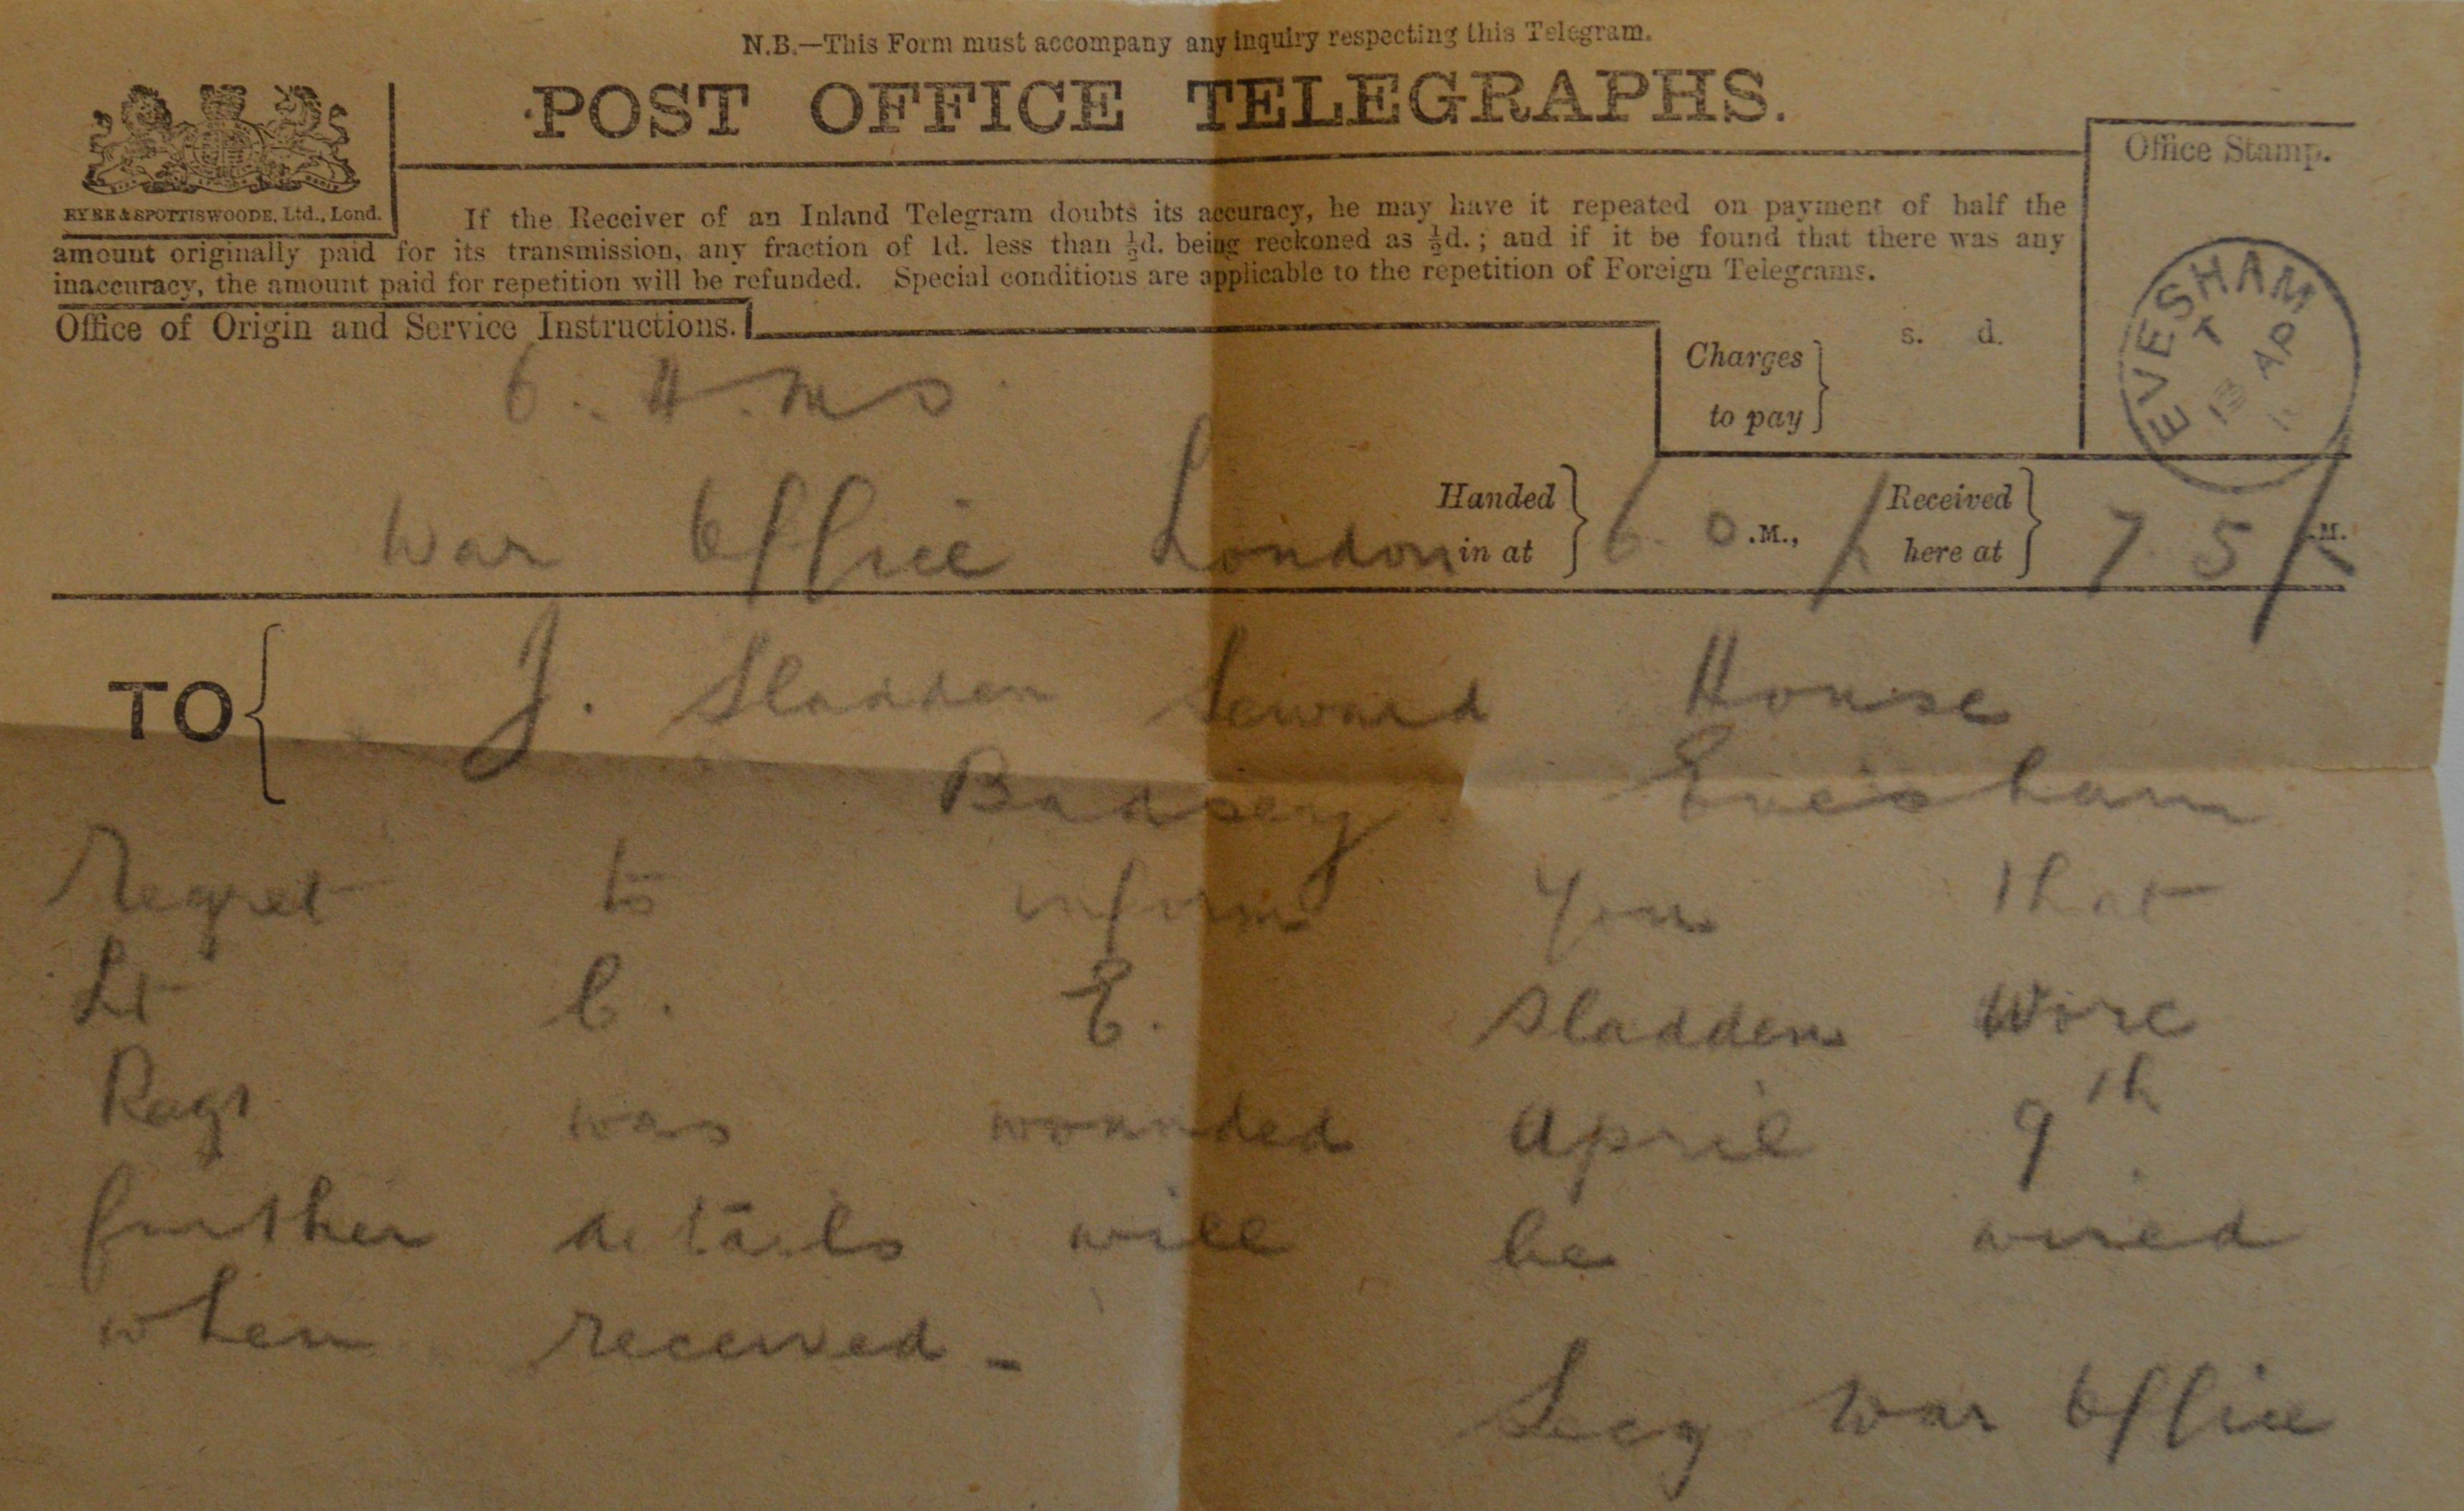 N.B.—This Form must accompany any inquiry respecting this Telegram.
POST OFFICE TELEGRAPHS.
Office Stamp.
EYRE & SPOTTISWOODE, Ltd., Lond.
If the Receiver of an Inland Telegram doubts its accuracy, he may have it repeated on payment of half the
amount originally paid for its transmission, any fraction of 1d. less than ½d. being reckoned as ½d.; and if it be found that there was any
inaccuracy, the amount paid for repetition will be refunded. Special conditions are applicable to the repetition of Foreign Telegrams.
EVESHAM
T
13 AP
Office of Origin and Service Instructions.
s. d.
Charges to pay
O. H. M S
War Office London
Handed in at 6. 0 .M.,
Received here at 7 5 .M.
TO J. Sladden Seward House
Badsey Evesham
Regret to inform you that
Lt C. E. Sladden Worc
Regt was wounded April 9th
further details will be wired
when received -
Secy War Office